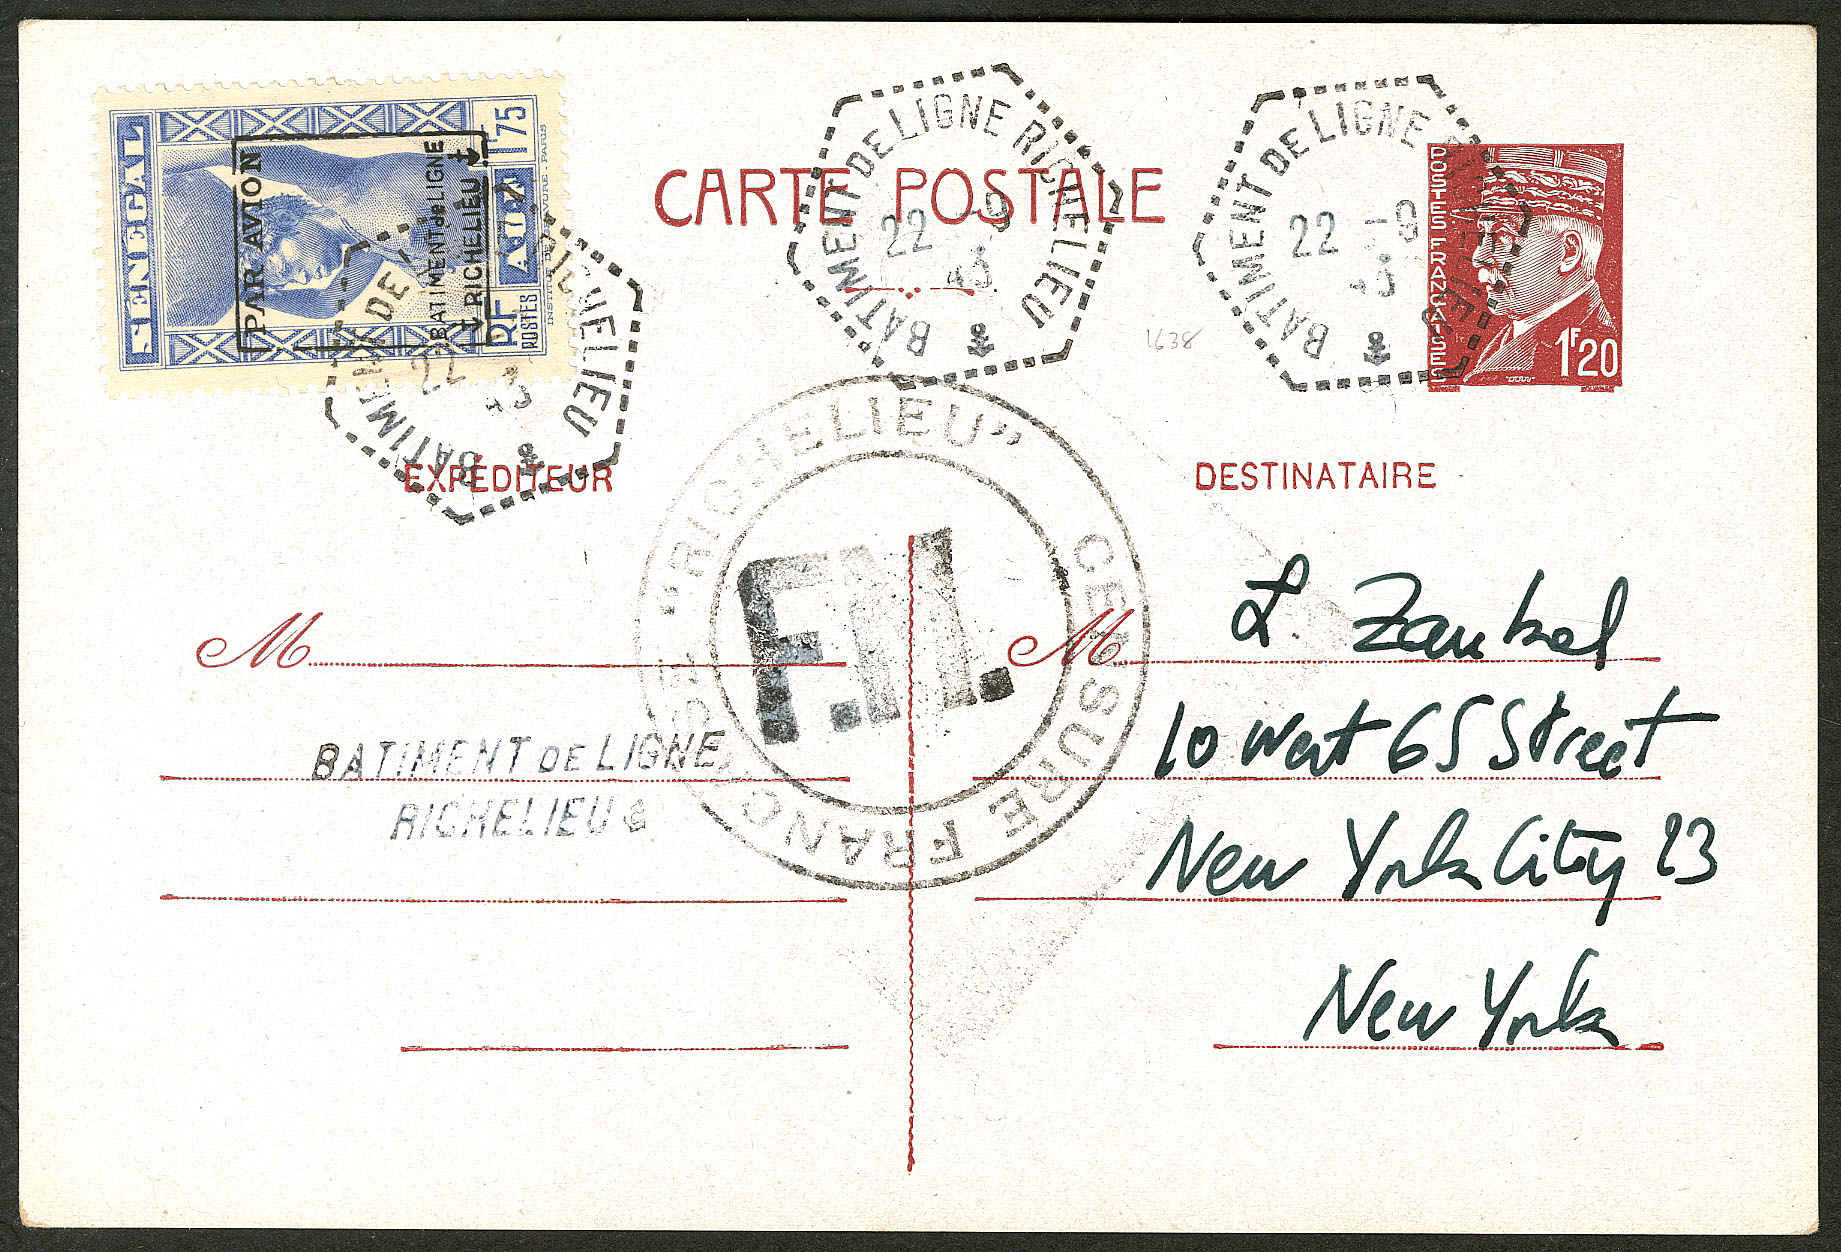 SENEGAL
1F75
AOF
RF
POSTES
PAR AVION
BATIMENT de LIGNE
RICHELIEU
CARTE POSTALE
BATIMENT DE LIGNE RICHELIEU
22 -9
43
BATIMENT DE LIGNE RICHELIEU
22 -9
43
BATIMENT DE RICHELIEU
22
43
POSTES FRANÇAISES
1F20
1638
EXPÉDITEUR
DESTINATAIRE
"RICHELIEU"
CENSURE FRANÇAISE
F.M.
M
M
L Zankel
10 West 65 Street
New York City 23
New York
BATIMENT DE LIGNE
RICHELIEU